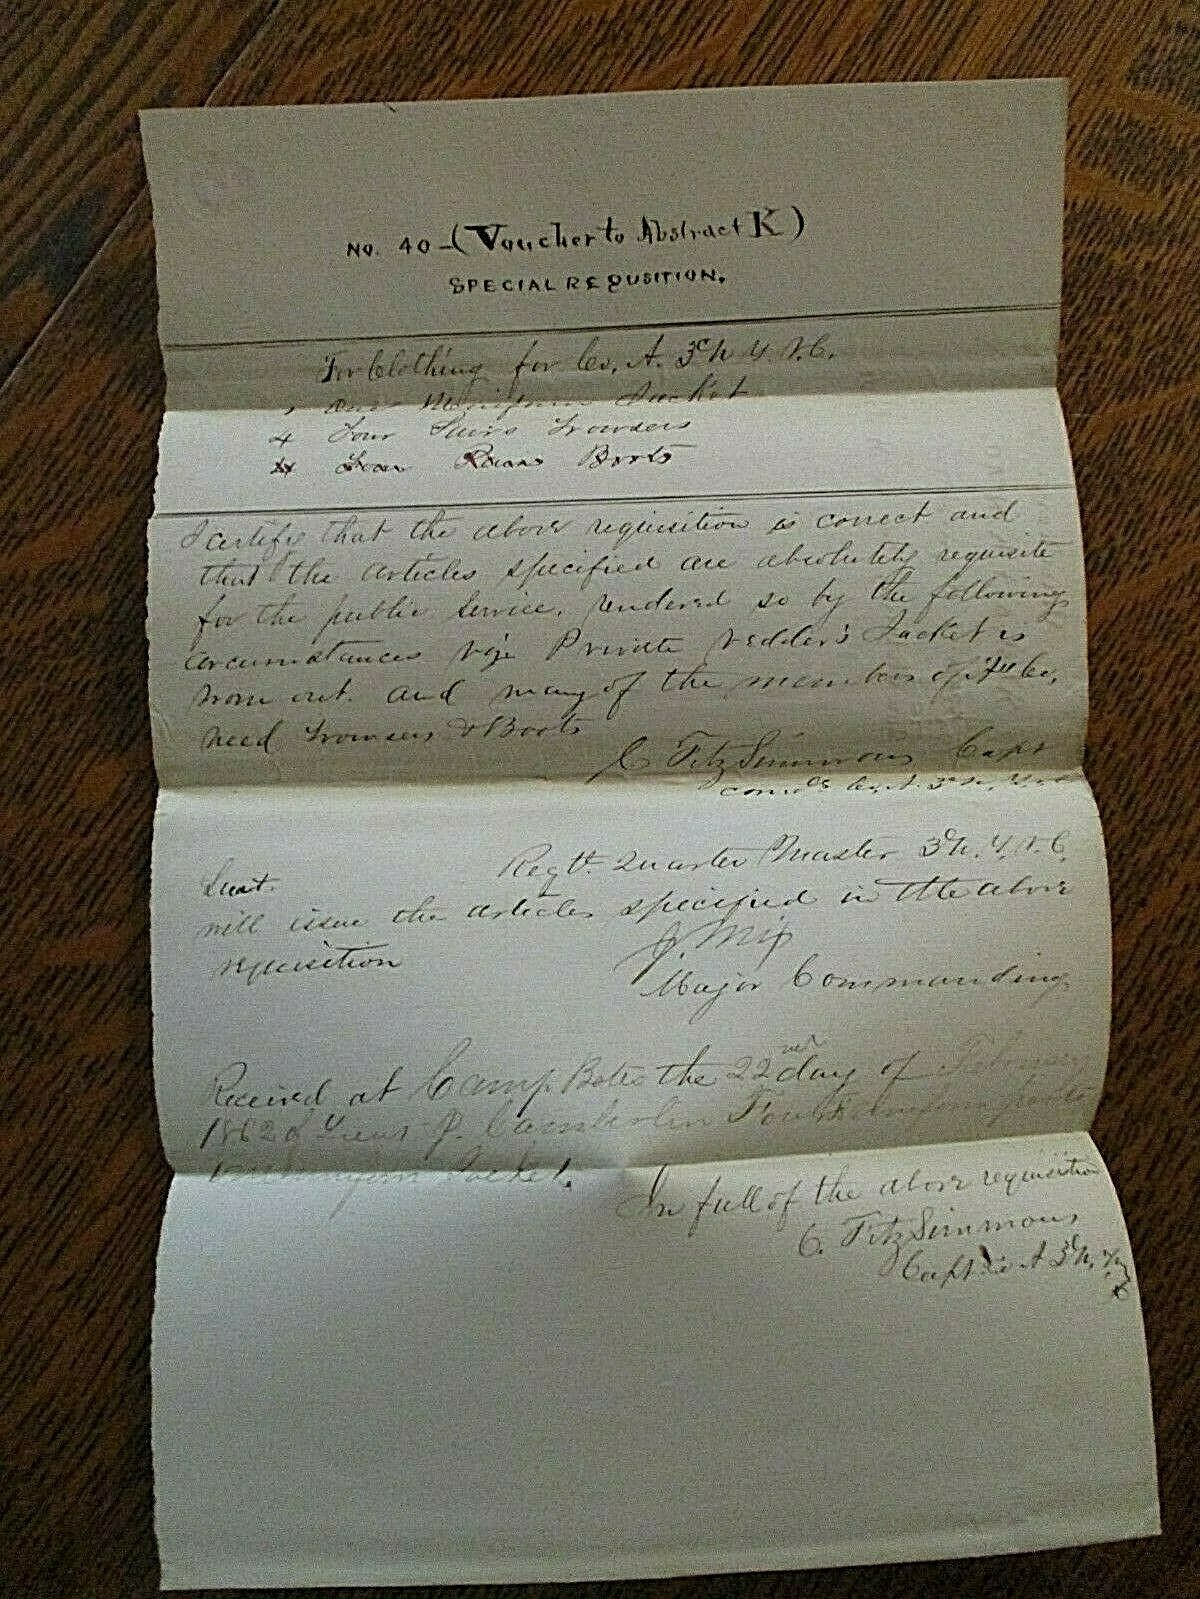 No. 40 - (Voucher to Abstract K)
SPECIAL REQUSITION.
For Clothing for Co, A. 3d N Y V.C.
One Jacket
4 Four Pairs Trowsers
4 Four Pairs Boots
I certify that the above requisition is correct and
that the articles specified are absolutely requisite
for the public service, rendered so by the following
circumstances viz Private Vedder's Jacket is
worn out. and many of the members of the Co,
need Trowsers & Boots
C FitzSimmons Capt
Comdg 3d N.Y.V.C
Regtl. Quarter Master 3d N.Y.V.C.
Lieut.
will issue the articles specified in the above
requisition
Major Commanding
Received at Camp Bates the 22nd day of February
1862 of Lieut P. Camberlin Four
Jacket.
In full of the above requisition
C. FitzSimmons
Capt Co A 3d N.Y.